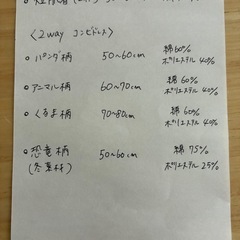 〈2way コンビドレス〉
・パンダ柄 50~60cm 綿60%
ポリエステル40%
・アニマル柄 60~70cm 綿60%
ポリエステル40%
・くるま柄 70~80cm 綿60%
ポリエステル40%
・恐竜柄 50~60cm 綿75%
(冬素材) ポリエステル25%